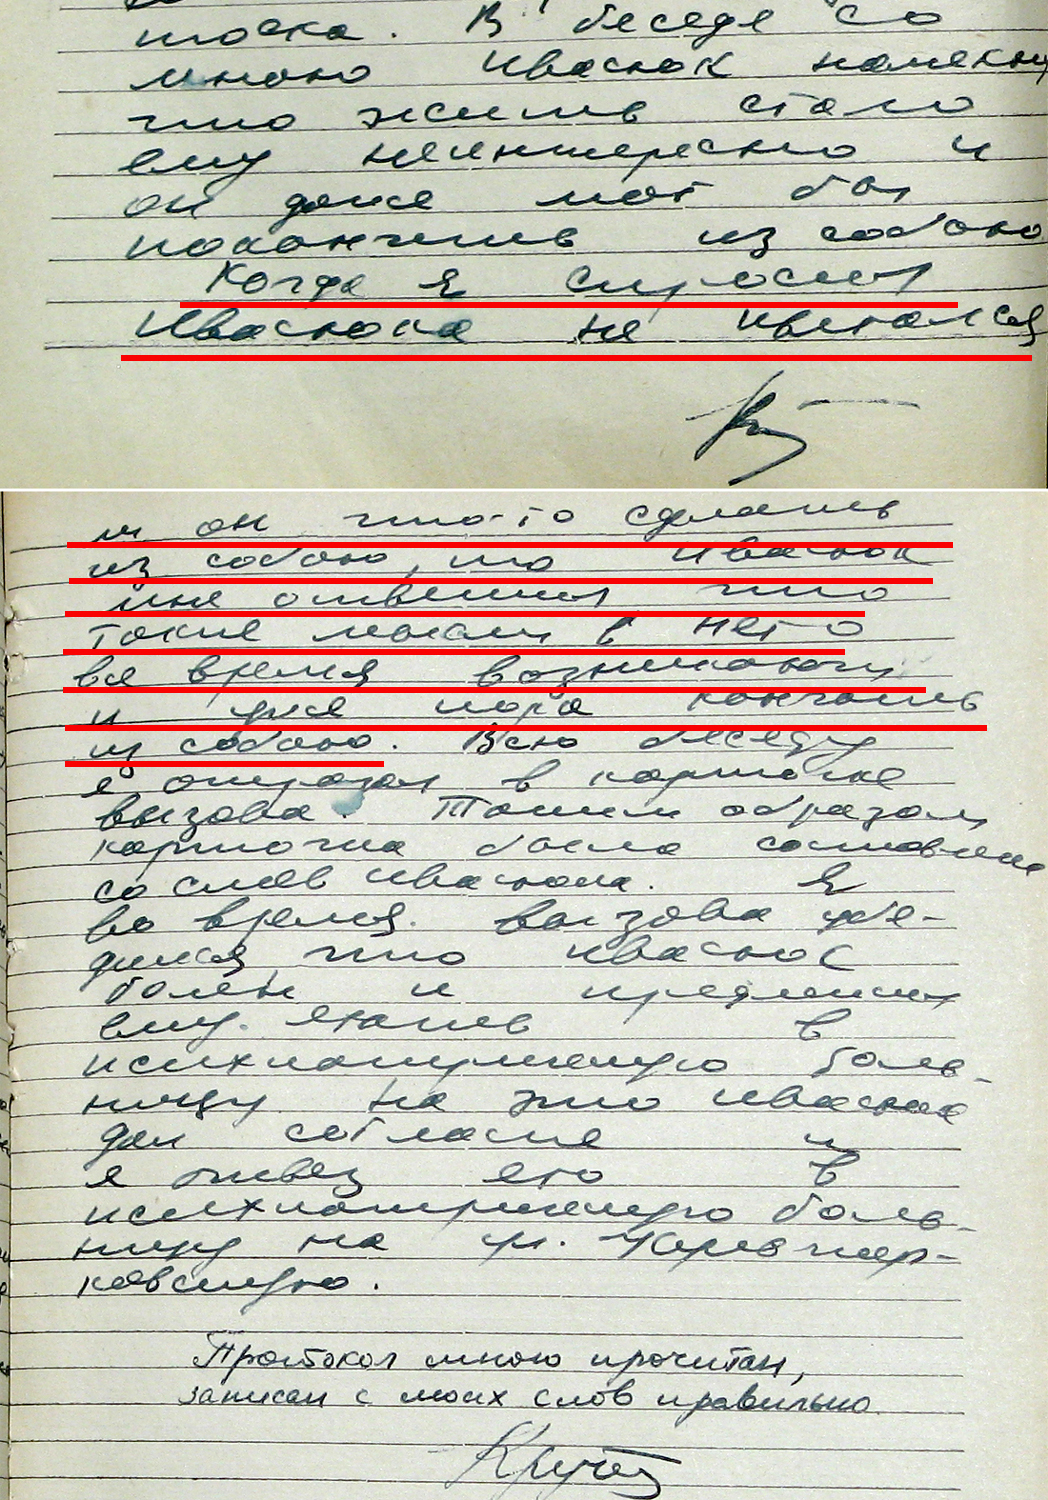 тоска. В беседе со
мною Ивасюк намекнул
что жить стало
ему неинтересно и
он даже мог бы
покончить из собою.
Когда я спросил
Ивасюка не пытался
ли он что-то сделать
из собою, то Ивасюк
мне ответил, что
такие мысли в него
все время возникают
и уже пора кончать
из собою. Всю беседу
я отразил в карточке
вызова. Таким образом
карточка была составлена
со слов Ивасюка. Я
во время вызова убе-
дился, что Ивасюк
болен и предложил
ему ехать в
психиатрическую боль-
ницу. На это Ивасюк
дал согласие и
я отвез его в
психиатрическую боль-
ницу на ул.
Протокол мною прочитан,
записан с моих слов правильно.